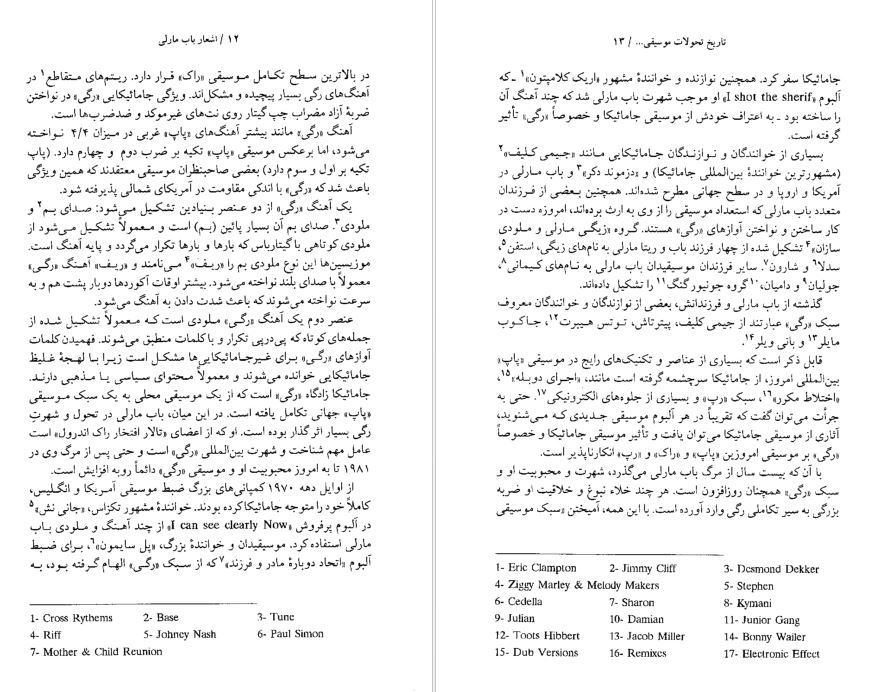 ۱۲ / اشعار باب مارلی
در بالاترین سطح تکامل موسیقی «راک» قرار دارد. ریتم‌های متقاطع۱ در
آهنگ‌های رگی بسیار پیچیده و مشکل‌اند. ویژگی جامائیکایی «رگی» در نواختن
ضربهٔ آزاد مضراب چپ گیتار روی نت‌های غیرموکد و ضدضرب‌ها است.
آهنگ «رگی» مانند بیشتر آهنگ‌های «پاپ» غربی در میزان ۴/۴ نواخته
می‌شود، اما برعکس موسیقی «پاپ» تکیه بر ضرب دوم و چهارم دارد. (پاپ
تکیه بر اول و سوم دارد) بعضی صاحبنظران موسیقی معتقدند که همین ویژگی
باعث شد که «رگی» با اندکی مقاومت در آمریکای شمالی پذیرفته شود.
یک آهنگ «رگی» از دو عنصر بنیادین تشکیل می‌شود: صدای بم۲ و
ملودی۳. صدای بم آن بسیار پائین (بم) است و معمولاً تشکیل می‌شود از
ملودی کوتاهی با گیتارباس که بارها و بارها تکرار می‌گردد و پایه آهنگ است.
موزیسین‌ها این نوع ملودی بم را «ریف»۴ می‌نامند و «ریف» آهنگ «رگی»
معمولاً با صدای بلند نواخته می‌شود. بیشتر اوقات آکوردها دوبار پشت هم و به
سرعت نواخته می‌شوند که باعث شدت دادن به آهنگ می‌شود.
عنصر دوم یک آهنگ «رگی» ملودی است که معمولاً تشکیل شده از
جمله‌های کوتاه که پی‌درپی تکرار و با کلمات منطبق می‌شوند. فهمیدن کلمات
آوازهای «رگی» برای غیرجامائیکایی‌ها مشکل است زیرا با لهجهٔ غلیظ
جامائیکایی خوانده می‌شوند و معمولاً محتوای سیاسی یا مذهبی دارند.
جامائیکا زادگاه «رگی» است که از یک موسیقی محلی به یک سبک موسیقی
«پاپ» جهانی تکامل یافته است. در این میان، باب مارلی در تحول و شهرتِ
رگی بسیار اثر گذار بوده است. او که از اعضای «تالار افتخار راک اندرول» است
عامل مهم شناخت و شهرت بین‌المللی «رگی» است و حتی پس از مرگ وی در
۱۹۸۱ تا به امروز محبوبیت او و موسیقی «رگی» دائماً روبه افزایش است.
از اوایل دهه ۱۹۷۰ کمپانی‌های بزرگ ضبط موسیقی آمریکا و انگلیس،
کاملاً خود را متوجه جامائیکا کرده بودند. خوانندهٔ مشهور تکزاس، «جانی نش»۵
در آلبوم پرفروش «I can see clearly Now» از چند آهنگ و ملودی باب
مارلی استفاده کرد. موسیقیدان و خوانندهٔ بزرگ، «پل سایمون»۶، برای ضبط
آلبوم «اتحاد دوبارهٔ مادر و فرزند»۷ که از سبک «رگی» الهام گرفته بود، به
1- Cross Rythems 2- Base 3- Tune
4- Riff 5- Johney Nash 6- Paul Simon
7- Mother & Child Reunion
تاریخ تحولات موسیقی... / ۱۳
جامائیکا سفر کرد. همچنین نوازنده و خوانندهٔ مشهور «اریک کلامپتون»۱ ـ که
آلبوم «I shot the sherif» او موجب شهرت باب مارلی شد که چند آهنگ آن
را ساخته بود ـ به اعتراف خودش از موسیقی جامائیکا و خصوصاً «رگی» تأثیر
گرفته است.
بسیاری از خوانندگان و نوازندگان جامائیکایی مانند «جیمی کلیف»۲
(مشهورترین خوانندهٔ بین‌المللی جامائیکا) و «دزموند دکر»۳ و باب مارلی در
آمریکا و اروپا و در سطح جهانی مطرح شده‌اند. همچنین بعضی از فرزندان
متعدد باب مارلی که استعداد موسیقی را از وی به ارث برده‌اند، امروزه دست در
کار ساختن و نواختن آوازهای «رگی» هستند. گروه «زیگی مارلی و ملودی
سازان»۴ تشکیل شده از چهار فرزند باب و ریتا مارلی به نام‌های زیگی، استفن۵،
سدلا۶ و شارون۷. سایر فرزندان موسیقیدان باب مارلی به نام‌های کیمانی۸،
جولیان۹ و دامیان،۱۰ گروه جونیور گنگ۱۱ را تشکیل داده‌اند.
گذشته از باب مارلی و فرزندانش، بعضی از نوازندگان و خوانندگان معروف
سبک «رگی» عبارتند از جیمی کلیف، پیترتاش، توتس هیبرت۱۲، جاکوب
مایلر۱۳ و بانی ویلر۱۴.
قابل ذکر است که بسیاری از عناصر و تکنیک‌های رایج در موسیقی «پاپ»
بین‌المللی امروز، از جامائیکا سرچشمه گرفته است مانند، «اجرای دوبله»۱۵،
«اختلاط مکرر»۱۶، سبک «رپ» و بسیاری از جلوه‌های الکترونیکی۱۷. حتی به
جرأت می‌توان گفت که تقریباً در هر آلبوم موسیقی جدیدی که می‌شنوید،
آثاری از موسیقی جامائیکا می‌توان یافت و تأثیر موسیقی جامائیکا و خصوصاً
«رگی» بر موسیقی امروزین «پاپ» و «راک» و «رپ» انکارناپذیر است.
با آن که بیست سال از مرگ باب مارلی می‌گذرد، شهرت و محبوبیت او و
سبک «رگی» همچنان روزافزون است. هر چند خلاء نبوغ و خلاقیت او ضربه
بزرگی به سیر تکاملی رگی وارد آورده است. با این همه، آمیختن «سبک موسیقی
1- Eric Clampton 2- Jimmy Cliff 3- Desmond Dekker
4- Ziggy Marley & Melody Makers 5- Stephen
6- Cedella 7- Sharon 8- Kymani
9- Julian 10- Damian 11- Junior Gang
12- Toots Hibbert 13- Jacob Miller 14- Bonny Wailer
15- Dub Versions 16- Remixes 17- Electronic Effect